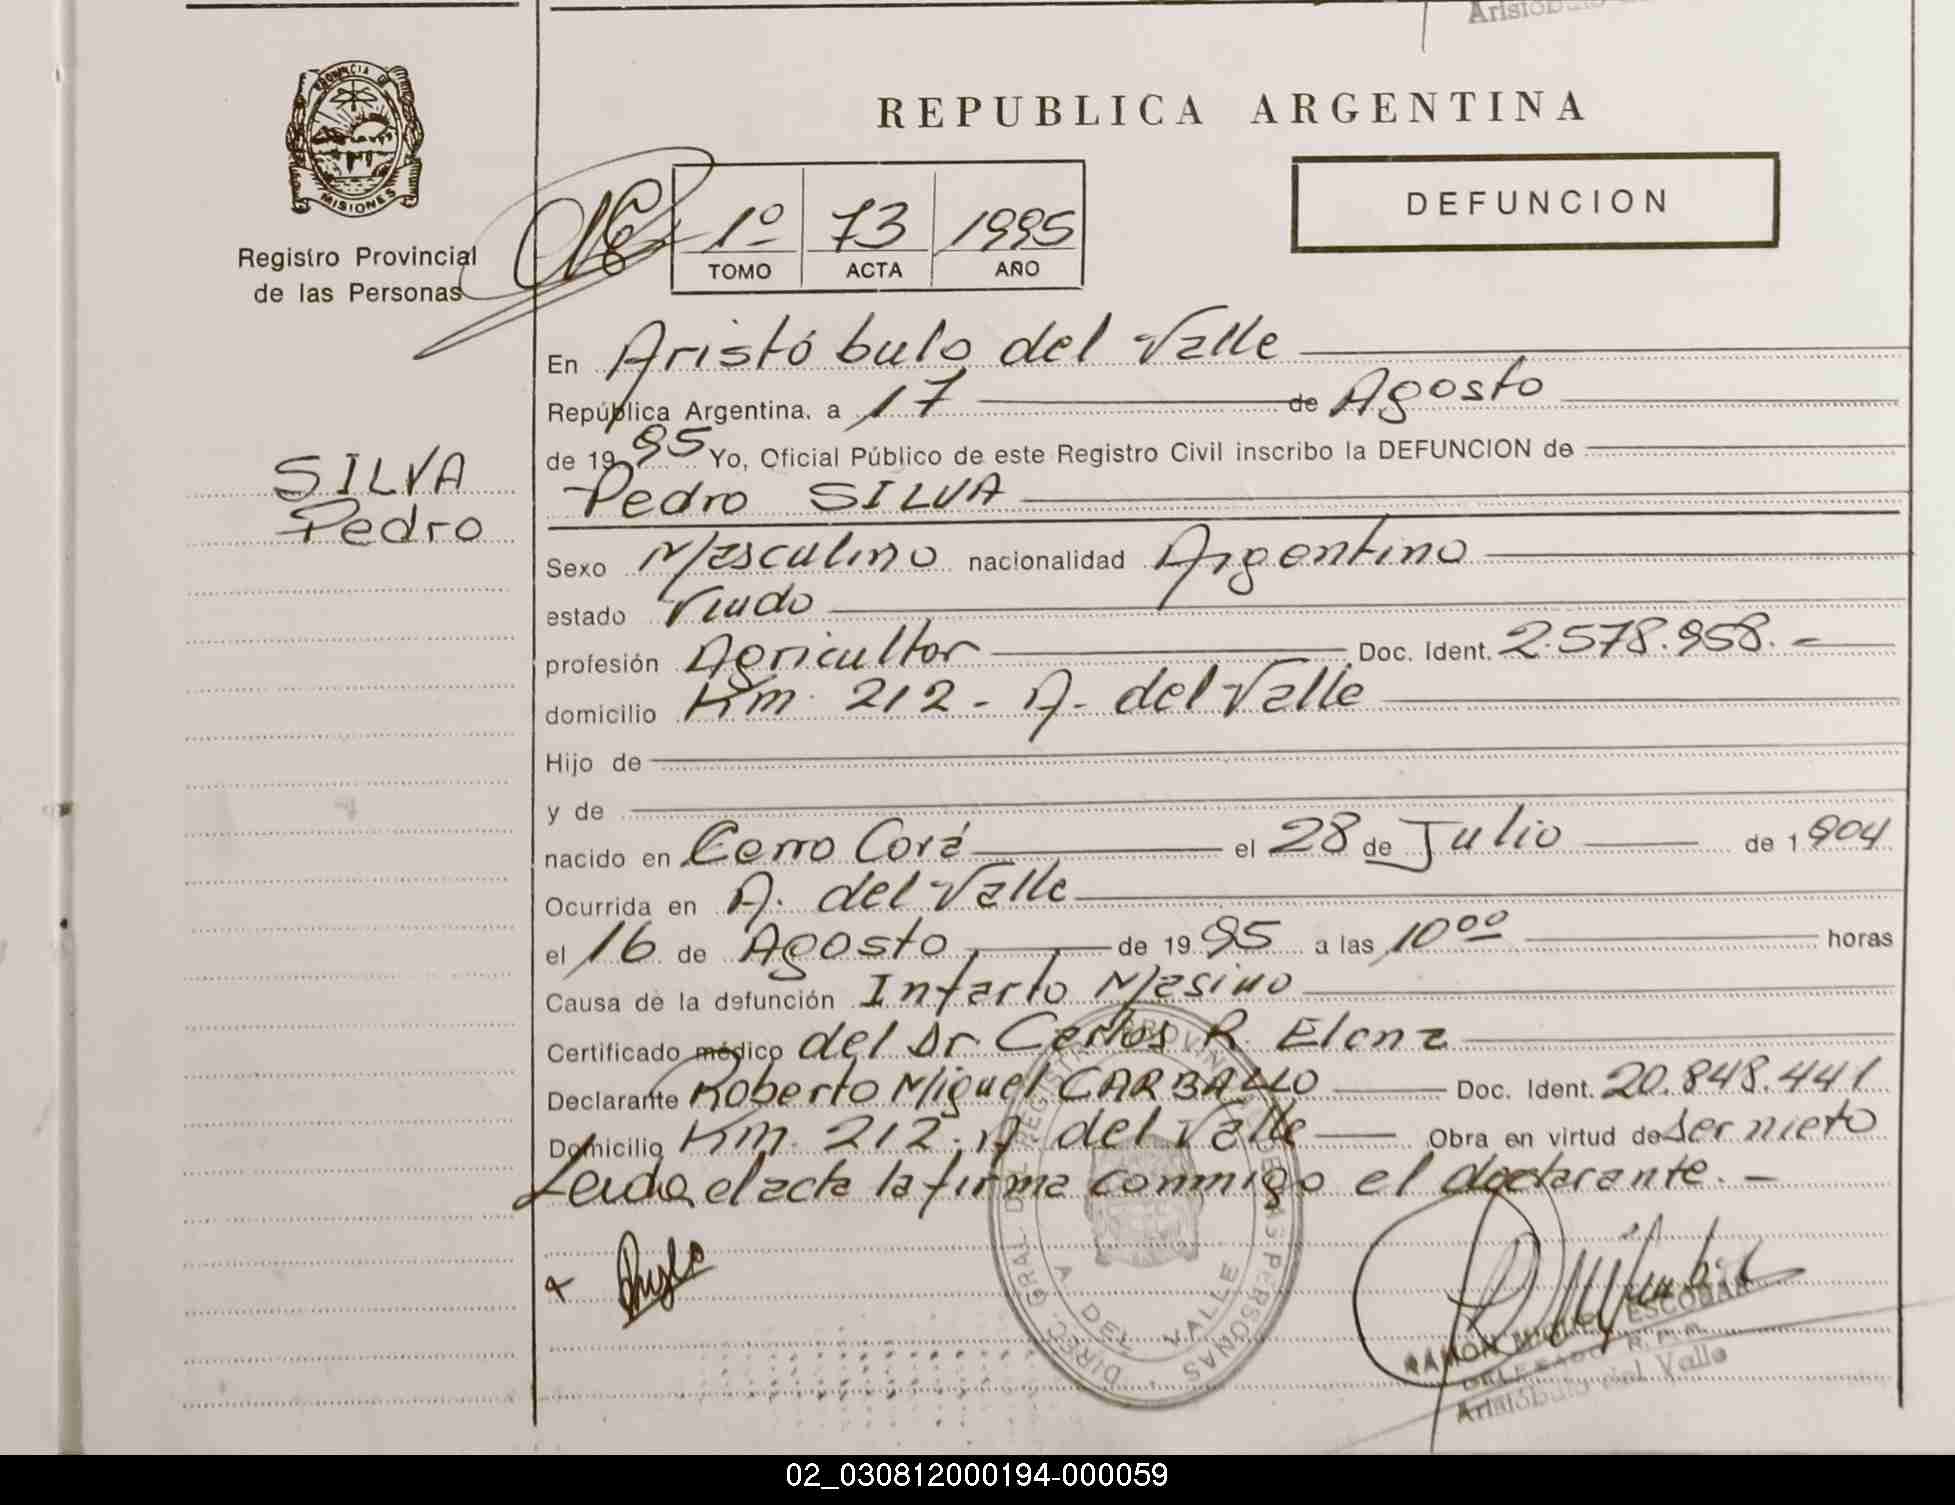 REPUBLICA ARGENTINA
PROVINCIA DE
MISIONES
Registro Provincial
de las Personas
1º 73 1995
TOMO ACTA AÑO
DEFUNCION
En Aristóbulo del Valle
República Argentina, a 17 de Agosto
de 1995 Yo, Oficial Público de este Registro Civil inscribo la DEFUNCION de
SILVA
Pedro
Pedro SILVA
Sexo Masculino nacionalidad Argentino
estado Viudo
profesión Agricultor Doc. Ident. 2.578.958.-
domicilio Km. 212 - A. del Valle
Hijo de
y de
nacido en Cerro Corá el 28 de Julio de 1904
Ocurrida en A. del Valle
el 16 de Agosto de 1995 a las 10⁰⁰ horas
Causa de la defunción Infarto Masivo
Certificado médico del Dr Carlos R.
Declarante Roberto Miguel CARBALLO Doc. Ident. 20.848.441
Domicilio Km. 212. A. del Valle Obra en virtud de ser nieto
Leida el acta la firma conmigo el declarante.-
DIREC. GRAL. DEL REGISTRO PROVINCIAL DE LAS PERSONAS
A. DEL VALLE
RAMON MIGUEL ESCOBAR
DELEGADO R.P.P.
Aristóbulo del Valle
02_030812000194-000059